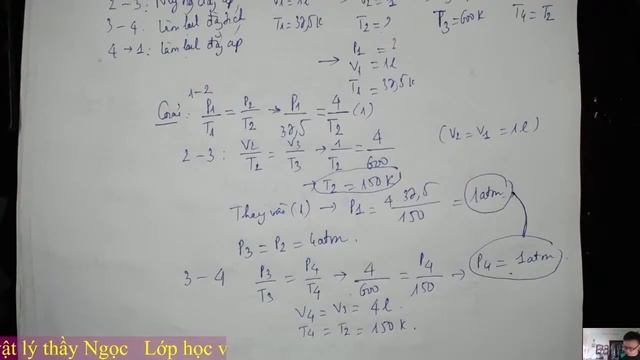 2 - 3: Nung nóng đẳng áp V₁ = 1l → V₂ = 1
3 - 4. Làm lạnh đẳng tích T₁ = 37,5K T₂ = ? T₃ = 600K T₄ = T₂
4 → 1: làm lạnh đẳng áp
→ P₁ = ?
V₁ = 1l
T₁ = 37,5K
1-2
Giải: P₁/T₁ = P₂/T₂ → P₁/37,5 = 4/T₂ (1)
2 - 3: V₂/T₂ = V₃/T₃ → 1/T₂ = 4/600 (V₂ = V₁ = 1l)
→ T₂ = 150K
Thay vào (1) → P₁ = 4.37,5/150 = 1atm
P₃ = P₂ = 4atm.
3 - 4 P₃/T₃ = P₄/T₄ → 4/600 = P₄/150 → P₄ = 1atm
V₄ = V₃ = 4l.
T₄ = T₂ = 150K.
vật lý thầy Ngọc Lớp học v